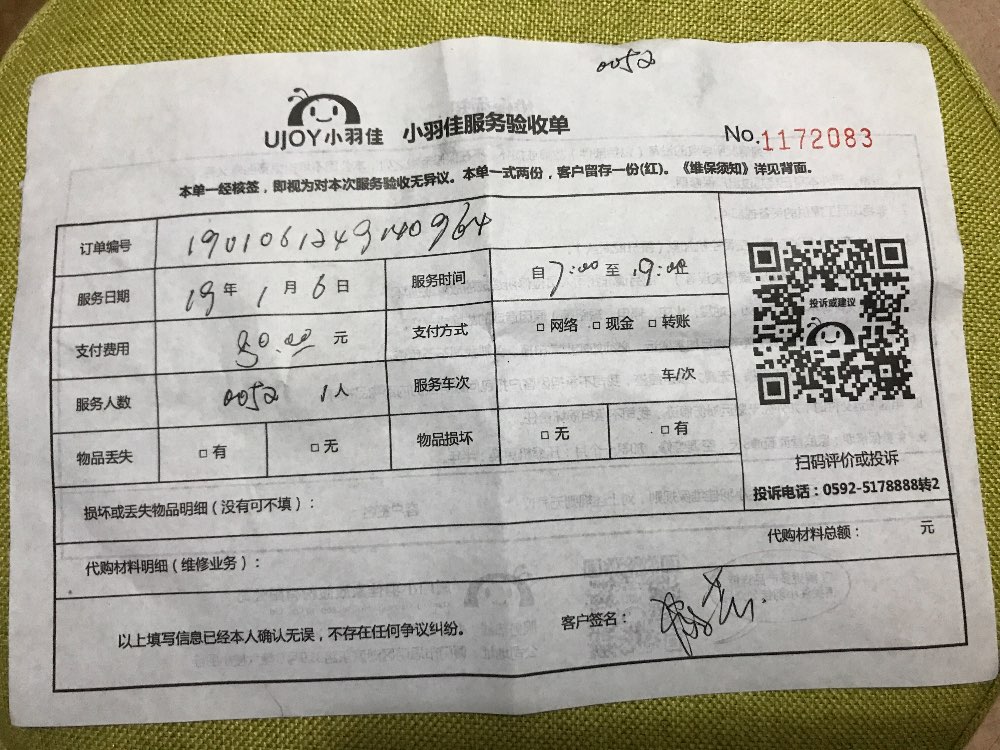 0052
UJOY小羽佳 小羽佳服务验收单 No.1172083
本单一经核签，即视为对本次服务验收无异议。本单一式两份，客户留存一份(红)。《维保须知》详见背面。
订单编号 1901061249140964
服务日期 19年1月6日 服务时间 自7:00至19:00止
支付费用 80.00元 支付方式 □网络 □现金 □转账
投诉或建议
服务人数 0052 1人 服务车次 车/次
物品丢失 □有 □无 物品损坏 □无 □有
扫码评价或投诉
投诉电话：0592-5178888转2
损坏或丢失物品明细(没有可不填)：
代购材料明细(维修业务)： 代购材料总额： 元
以上填写信息已经本人确认无误，不存在任何争议纠纷。 客户签名：